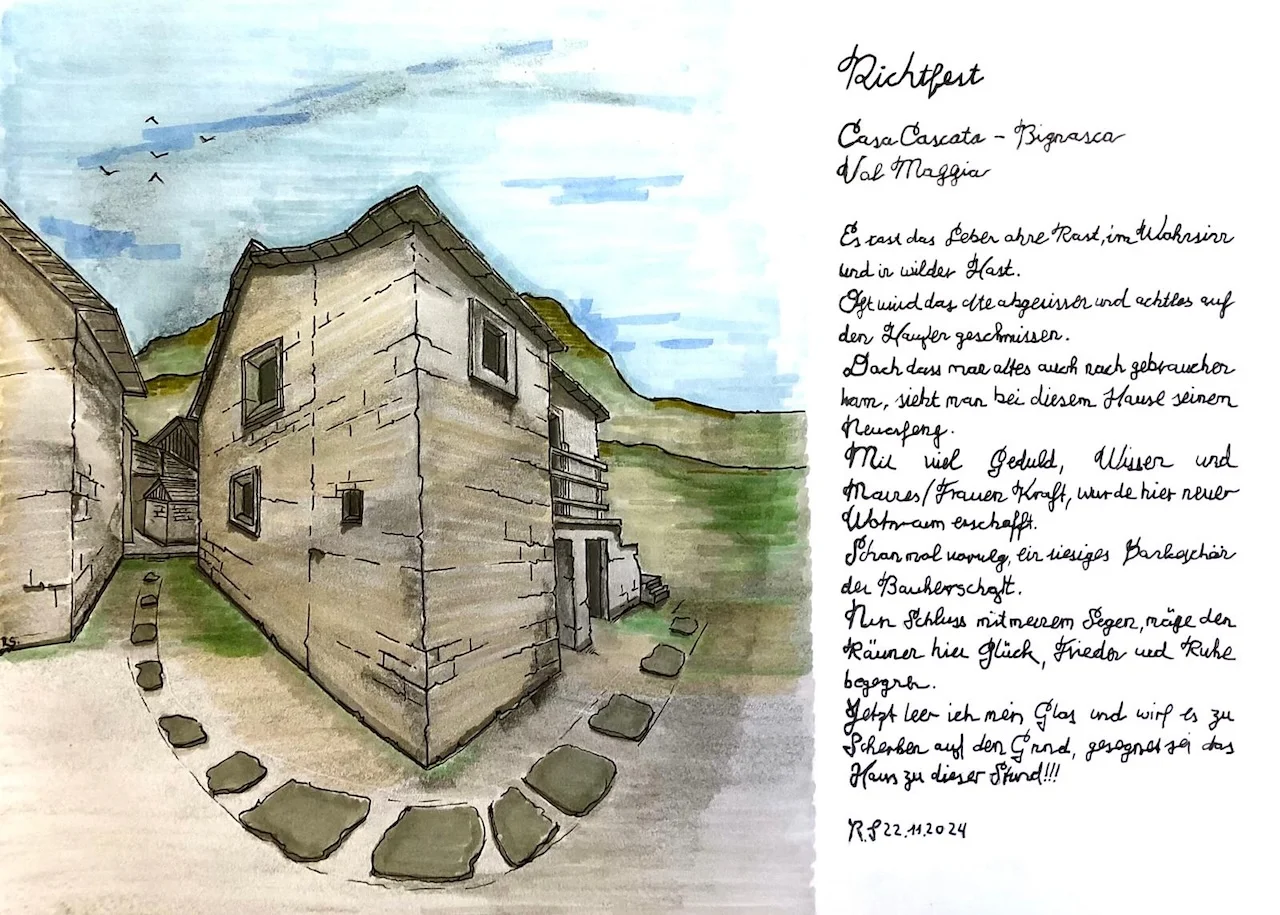 Richtfest
Casa Cascata - Bignasca
Val Maggia
Es rast das Leben ohne Rast, im Wahnsinn
und in wilder Hast.
Oft wird das alte abgerissen und achtlos auf
den Haufen geschmissen.
Doch dass man altes auch noch gebrauchen
kann, sieht man bei diesem Hause seinem
Neuanfang.
Mit viel Geduld, Wissen und
Mannes/Frauen Kraft, wurde hier neuer
Wohnraum erschafft.
Schon mal vorweg, ein riesiges Dankeschön
der Bauherrschaft.
Nun Schluss mit meinem Segen, möge den
Räumen hier Glück, Frieden und Ruhe
begegnen.
Jetzt leer ich mein Glas und wirf es zu
Scherben auf den Grund, gesegnet sei das
Haus zu dieser Stund!!!
R.S 22.11.2024
R.S.